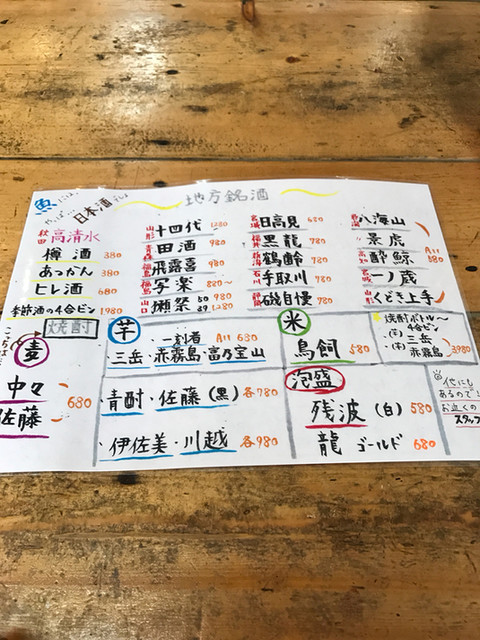 魚には、
やっぱ 日本酒でしょ
地方銘酒
秋田 高清水
樽酒 380
あつかん 380
ヒレ酒 680
季節酒の4合ビン 1980
山形 十四代 1280
青森 田酒 980
福島 飛露喜 980
福島 写楽 880〜
山口 獺祭 50 980
39 1280
宮城 日高見 680
福井 黒龍 780
鶴齢 780
石川 手取川 780
福岡 磯自慢 780
新潟 八海山
景虎
高知 酔鯨
宮城 一ノ蔵
山形 くどき上手
All 580
焼酎
こちらは
麦
中々
佐藤
680
芋
一刻者 All 680
・三岳・赤霧島・富乃宝山
・青酎・佐藤(黒) 各780
・伊佐美・川越 各980
米
鳥飼 580
泡盛
残波(白) 580
龍 ゴールド 680
焼酎ボトル〜
4合ビン
(芋)三岳
(芋)赤霧島
3980
他にも
あるので!
お近くの
スタッフ